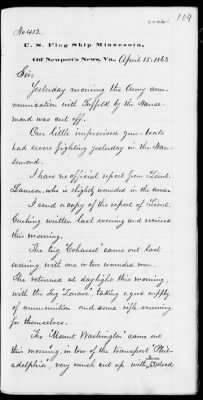 109
No 412.
U. S. Flag Ship Minnesota,
Off Newport's News, Va., April 15. 1863
Sir:
Yesterday morning the Army com-
munication with Suffolk by the Nanse-
mond was cut off.
Our little improvises gun-boats
had severe fighting yesterday in the Nan-
semond.
I have no official report from Lieut.
Lamson, who is slightly wounded in the arm.
I send a copy of the report of Lieut.
Cushing written last evening and received
this morning.
The tug "Cohasset" came out last
evening with one or two wounded men.
She returned at daylight this morning,
with the Tug "Zouave", taking a good supply
of ammunition and some rifle screening
for themselves.
The "Mount Washington" came out
this morning, in tow of the transport "Phil-
adelphia", very much cut up with